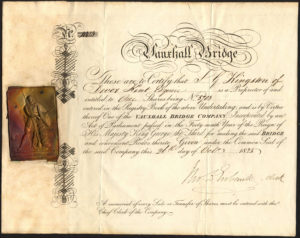 No.
Vauxhall Bridge
These are to Certify that J. G. Kingston of
Dover Kent Esquire is a Proprietor of and
entitled to One Share being No.
entered in the Register Book of the above Undertaking, and is by Virtue
thereof One of the VAUXHALL BRIDGE COMPANY, Incorporated by an
Act of Parliament passed in the Forty ninth Year of the Reign of
His Majesty King George the Third for making the said BRIDGE
and convenient Roads thereto, Given under the Common Seal of
the said Company this 26th day of Octr. 1825
Clerk
A memorial of every Sale or Transfer of Shares must be entered with the
Chief Clerk of the Company.